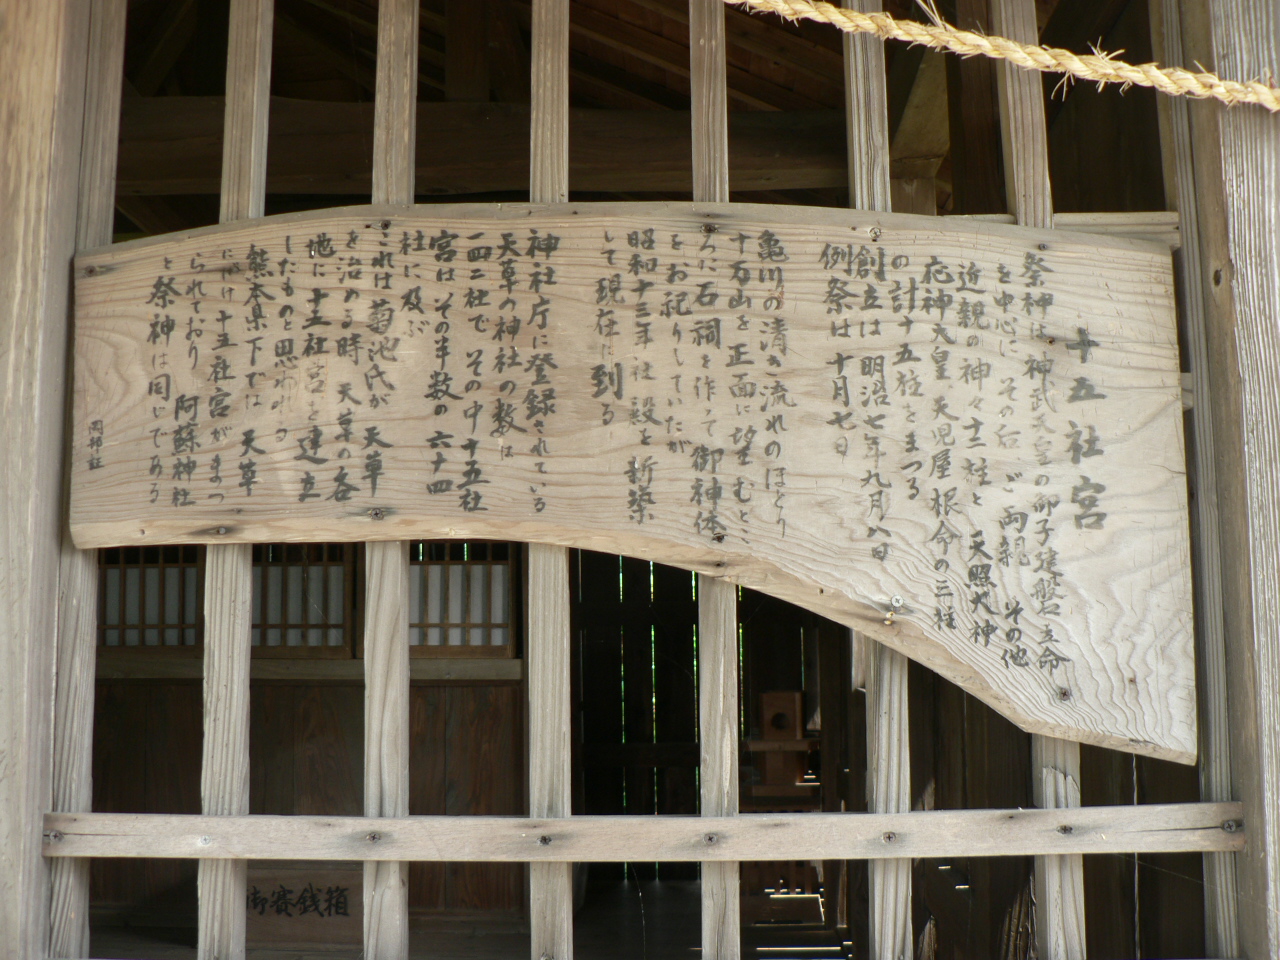 十五社宮
祭神は 神武天皇の御子建磐立命
を中心に その后、ご両親 その他
近親の神々十二柱と 天照大神
応神天皇 天児屋根命の三柱
の計十五柱をまつる
創立は 明治七年九月八日
例祭は 十月七日
亀川の清き流れのほとり
十万山を正面に望むと
ろに石祠を作って 御神体
をお祀りしていたが
昭和十三年 社殿を新築
して現在に到る
神社庁に登録されている
天草の神社の数は
一四二社で その中十五社
宮は その半数の 六十四
社に及ぶ
これは 菊池氏が 天草
を治める時 天草の各
地に 十五社宮を建立
したものと思われる
熊本県下では 天草
にだけ十五社宮がまつ
られており 阿蘇神社
と祭神は同じである
御賽銭箱